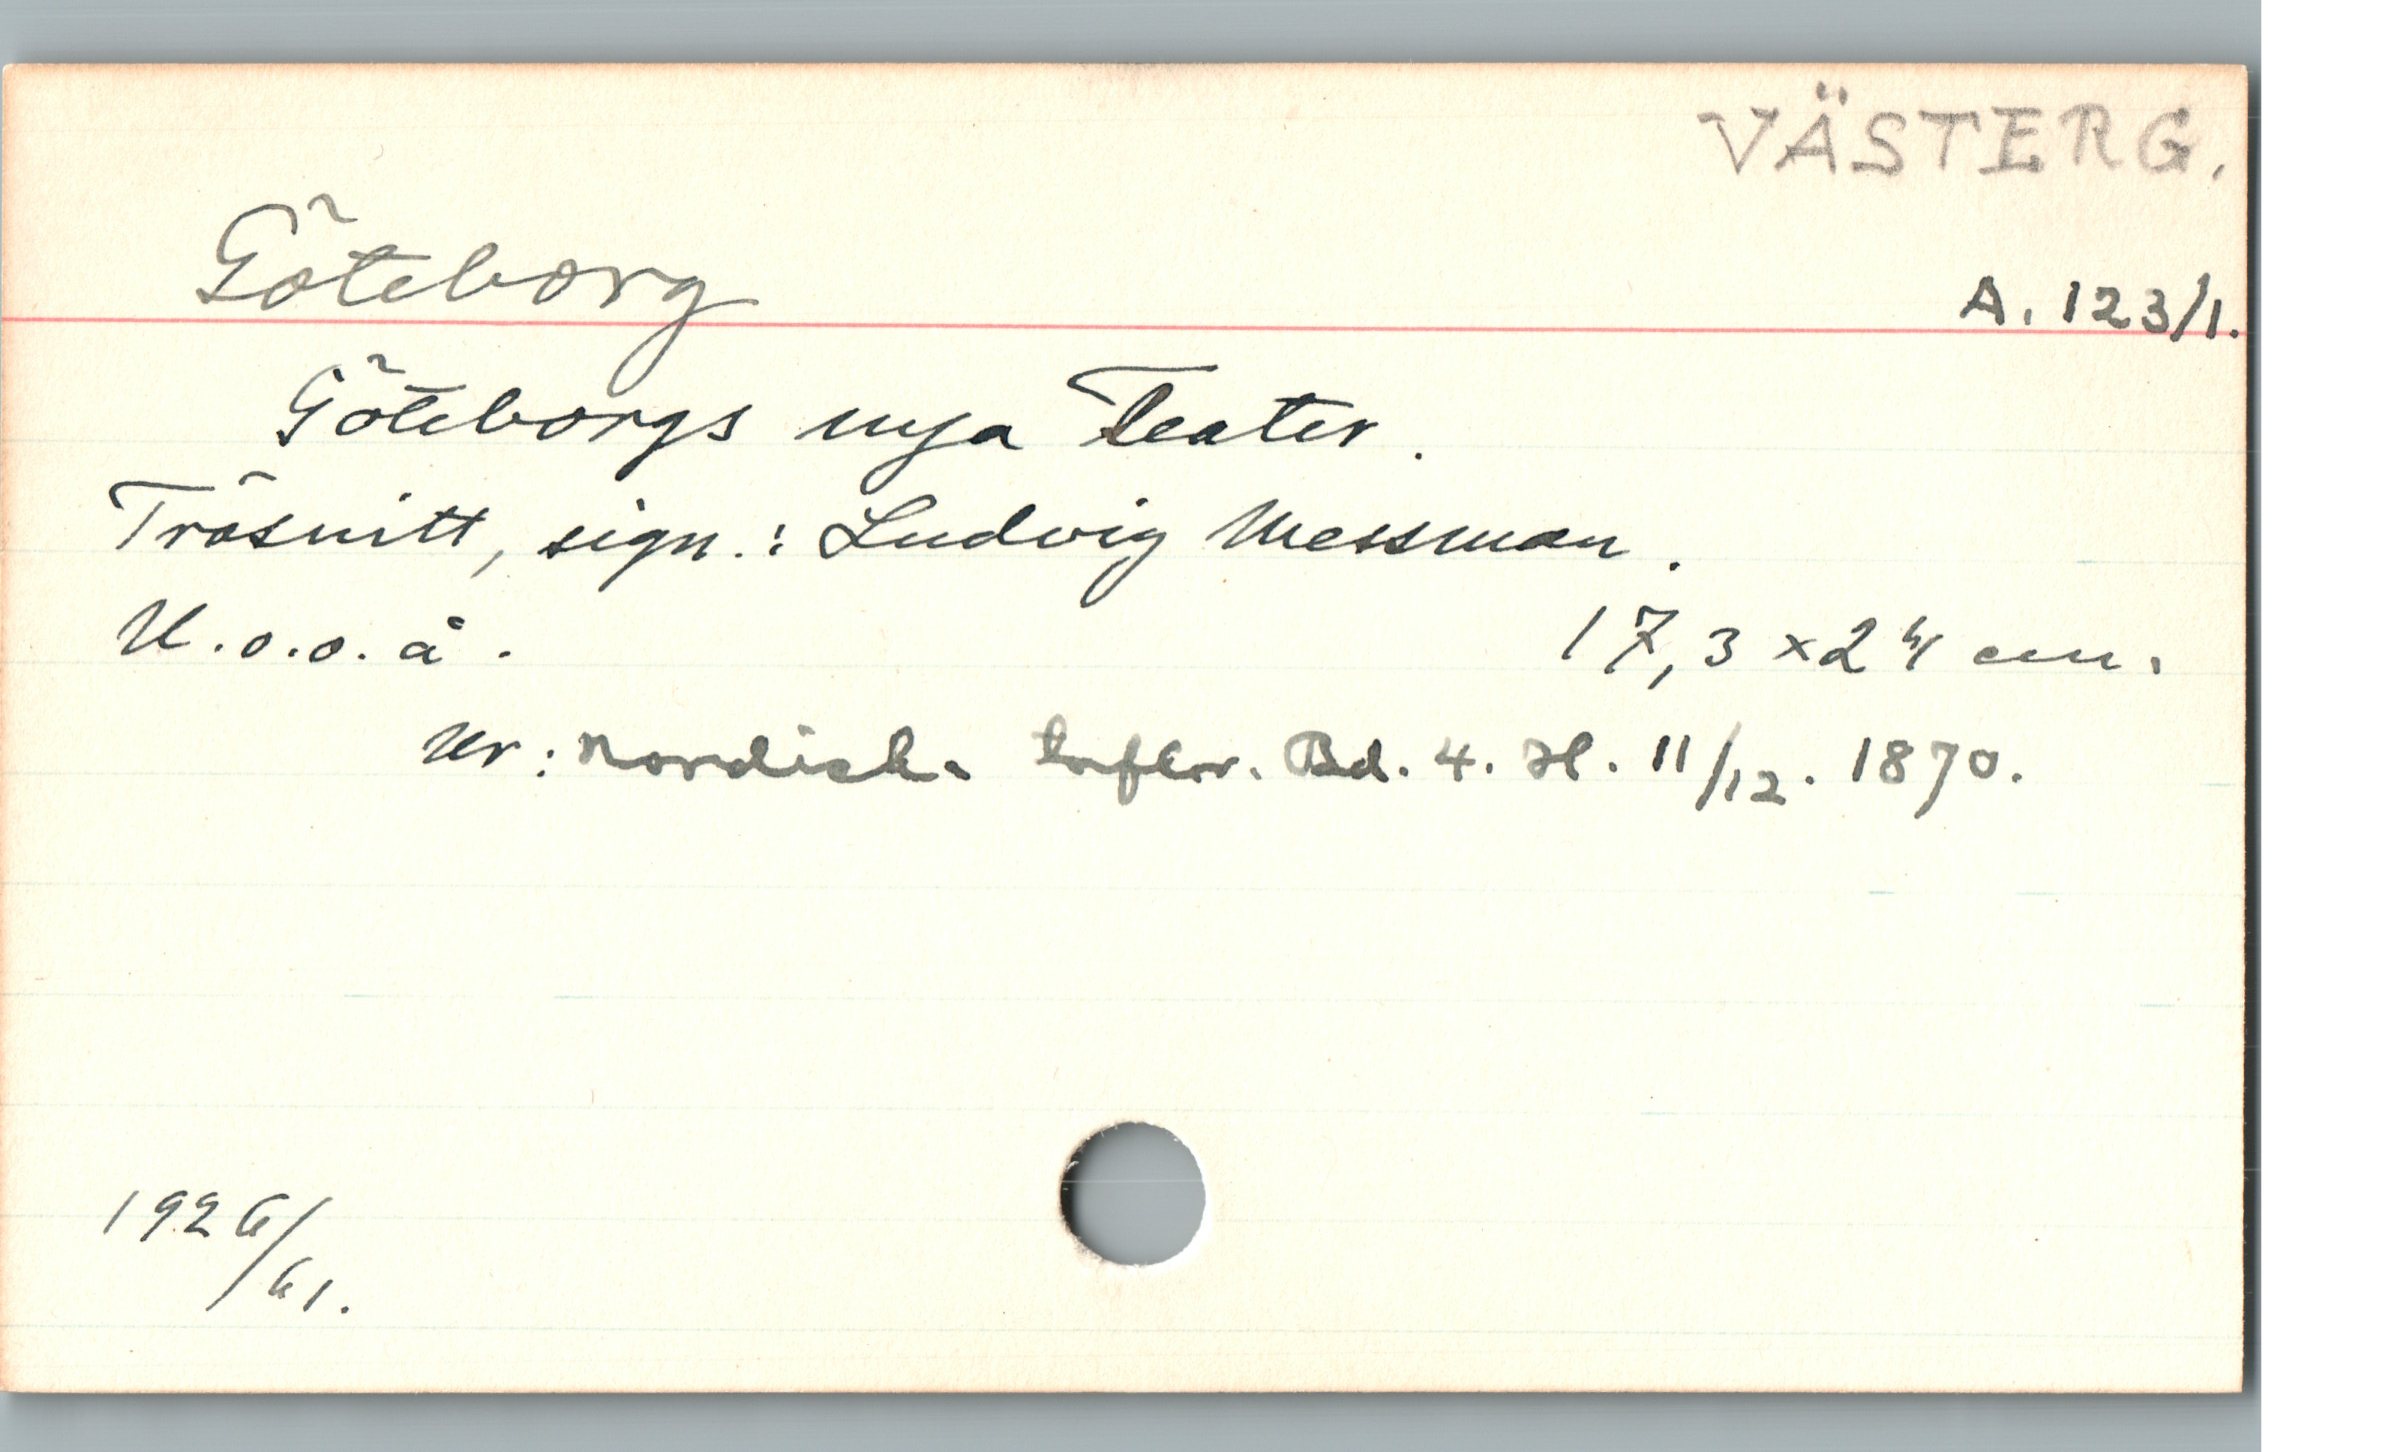 VÄSTERG.
Göteborg
A. 123/1.
Göteborgs nya Teater.
Träsnitt, sign.: Ludvig Messman.
U.o.o.å. 17,3 x 24 cm.
Ur: Nordiska taflor. Bd. 4. H. 11/12. 1870.
1926/61.